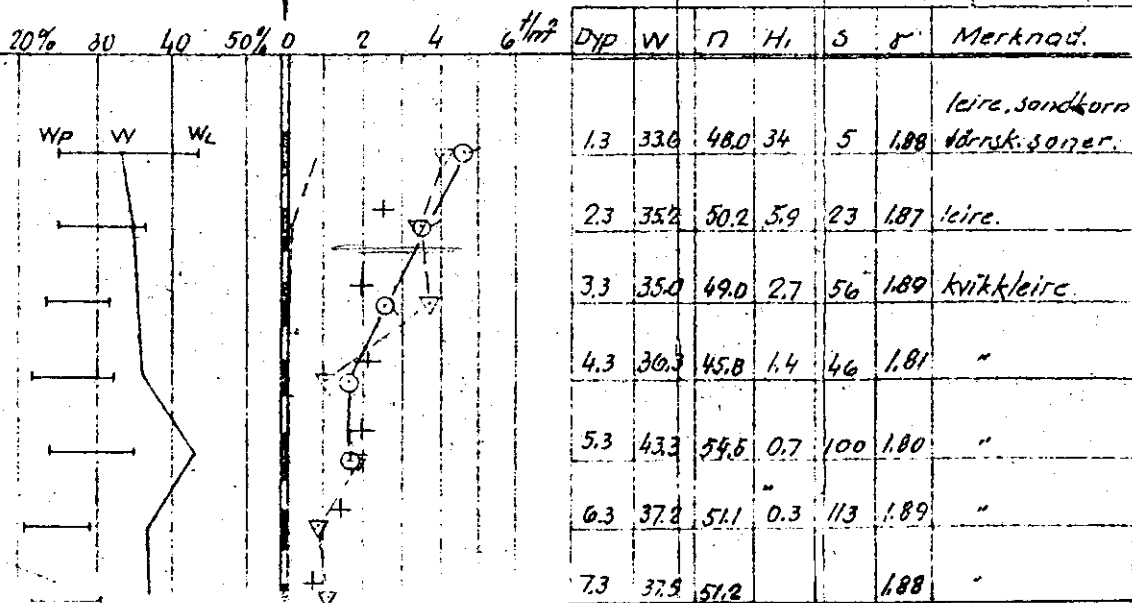 20% 30 40 50% 0 2 4 6 t/m²
Dyp W n H₁ S γ Merknad.
Wp W WL
leire, sandkorn
1.3 33.6 48.0 34 5 1.88 tørrsk. soner.
2.3 35.2 50.2 5.9 23 1.87 leire.
3.3 35.0 49.0 2.7 56 1.89 kvikkleire
4.3 36.3 45.8 1.4 46 1.81 "
5.3 43.3 54.5 0.7 100 1.80 "
6.3 37.2 51.1 0.3 113 1.89 "
7.3 37.5 51.2 1.88 "